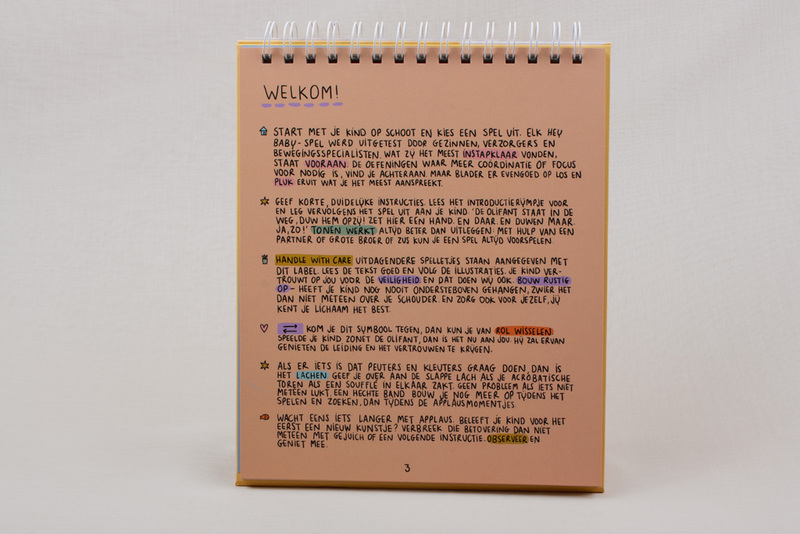 WELKOM!
START MET JE KIND OP SCHOOT EN KIES EEN SPEL UIT. ELK HEY
BABY-SPEL WERD UITGETEST DOOR GEZINNEN, VERZORGERS EN
BEWEGINGSSPECIALISTEN. WAT ZIJ HET MEEST INSTAPKLAAR VONDEN,
STAAT VOORAAN. DE OEFENINGEN WAAR MEER COORDINATIE OF FOCUS
VOOR NODIG IS, VIND JE ACHTERAAN. MAAR BLADER ER EVENGOED OP LOS EN
PLUK ERUIT WAT JE HET MEEST AANSPREEKT.
GEEF KORTE, DUIDELIJKE INSTRUCTIES. LEES HET INTRODUCTIERIJMPJE VOOR
EN LEG VERVOLGENS HET SPEL UIT AAN JE KIND. 'DE OLIFANT STAAT IN DE
WEG, DUW HEM OPZIJ! ZET HIER EEN HAND. EN DAAR. EN DUWEN MAAR.
JA, ZO!' TONEN WERKT ALTIJD BETER DAN UITLEGGEN. MET HULP VAN EEN
PARTNER OF GROTE BROER OF ZUS KUN JE EEN SPEL ALTIJD VOORSPELEN.
HANDLE WITH CARE UITDAGENDERE SPELLETJES STAAN AANGEGEVEN MET
DIT LABEL. LEES DE TEKST GOED EN VOLG DE ILLUSTRATIES. JE KIND VER-
TROUWT OP JOU VOOR DE VEILIGHEID. EN DAT DOEN WIJ OOK. BOUW RUSTIG
OP - HEEFT JE KIND NOG NOOIT ONDERSTEBOVEN GEHANGEN, ZWIER HET
DAN NIET METEEN OVER JE SCHOUDER. EN ZORG OOK VOOR JEZELF, JIJ
KENT JE LICHAAM HET BEST.
KOM JE DIT SYMBOOL TEGEN, DAN KUN JE VAN ROL WISSELEN.
SPEELDE JE KIND ZONET DE OLIFANT, DAN IS HET NU AAN JOU. HIJ ZAL ERVAN
GENIETEN DE LEIDING EN HET VERTROUWEN TE KRIJGEN.
ALS ER IETS IS DAT PEUTERS EN KLEUTERS GRAAG DOEN, DAN IS
HET LACHEN. GEEF JE OVER AAN DE SLAPPE LACH ALS JE ACROBATISCHE
TOREN ALS EEN SOUFFLÉ IN ELKAAR ZAKT. GEEN PROBLEEM ALS IETS NIET
METEEN LUKT. EEN HECHTE BAND BOUW JE NOG MEER OP TIJDENS HET
SPELEN EN ZOEKEN, DAN TIJDENS DE APPLAUSMOMENTJES.
WACHT EENS IETS LANGER MET APPLAUS. BELEEFT JE KIND VOOR HET
EERST EEN NIEUW KUNSTJE? VERBREEK DIE BETOVERING DAN NIET
METEEN MET GEJUICH OF EEN VOLGENDE INSTRUCTIE. OBSERVEER EN
GENIET MEE.
3